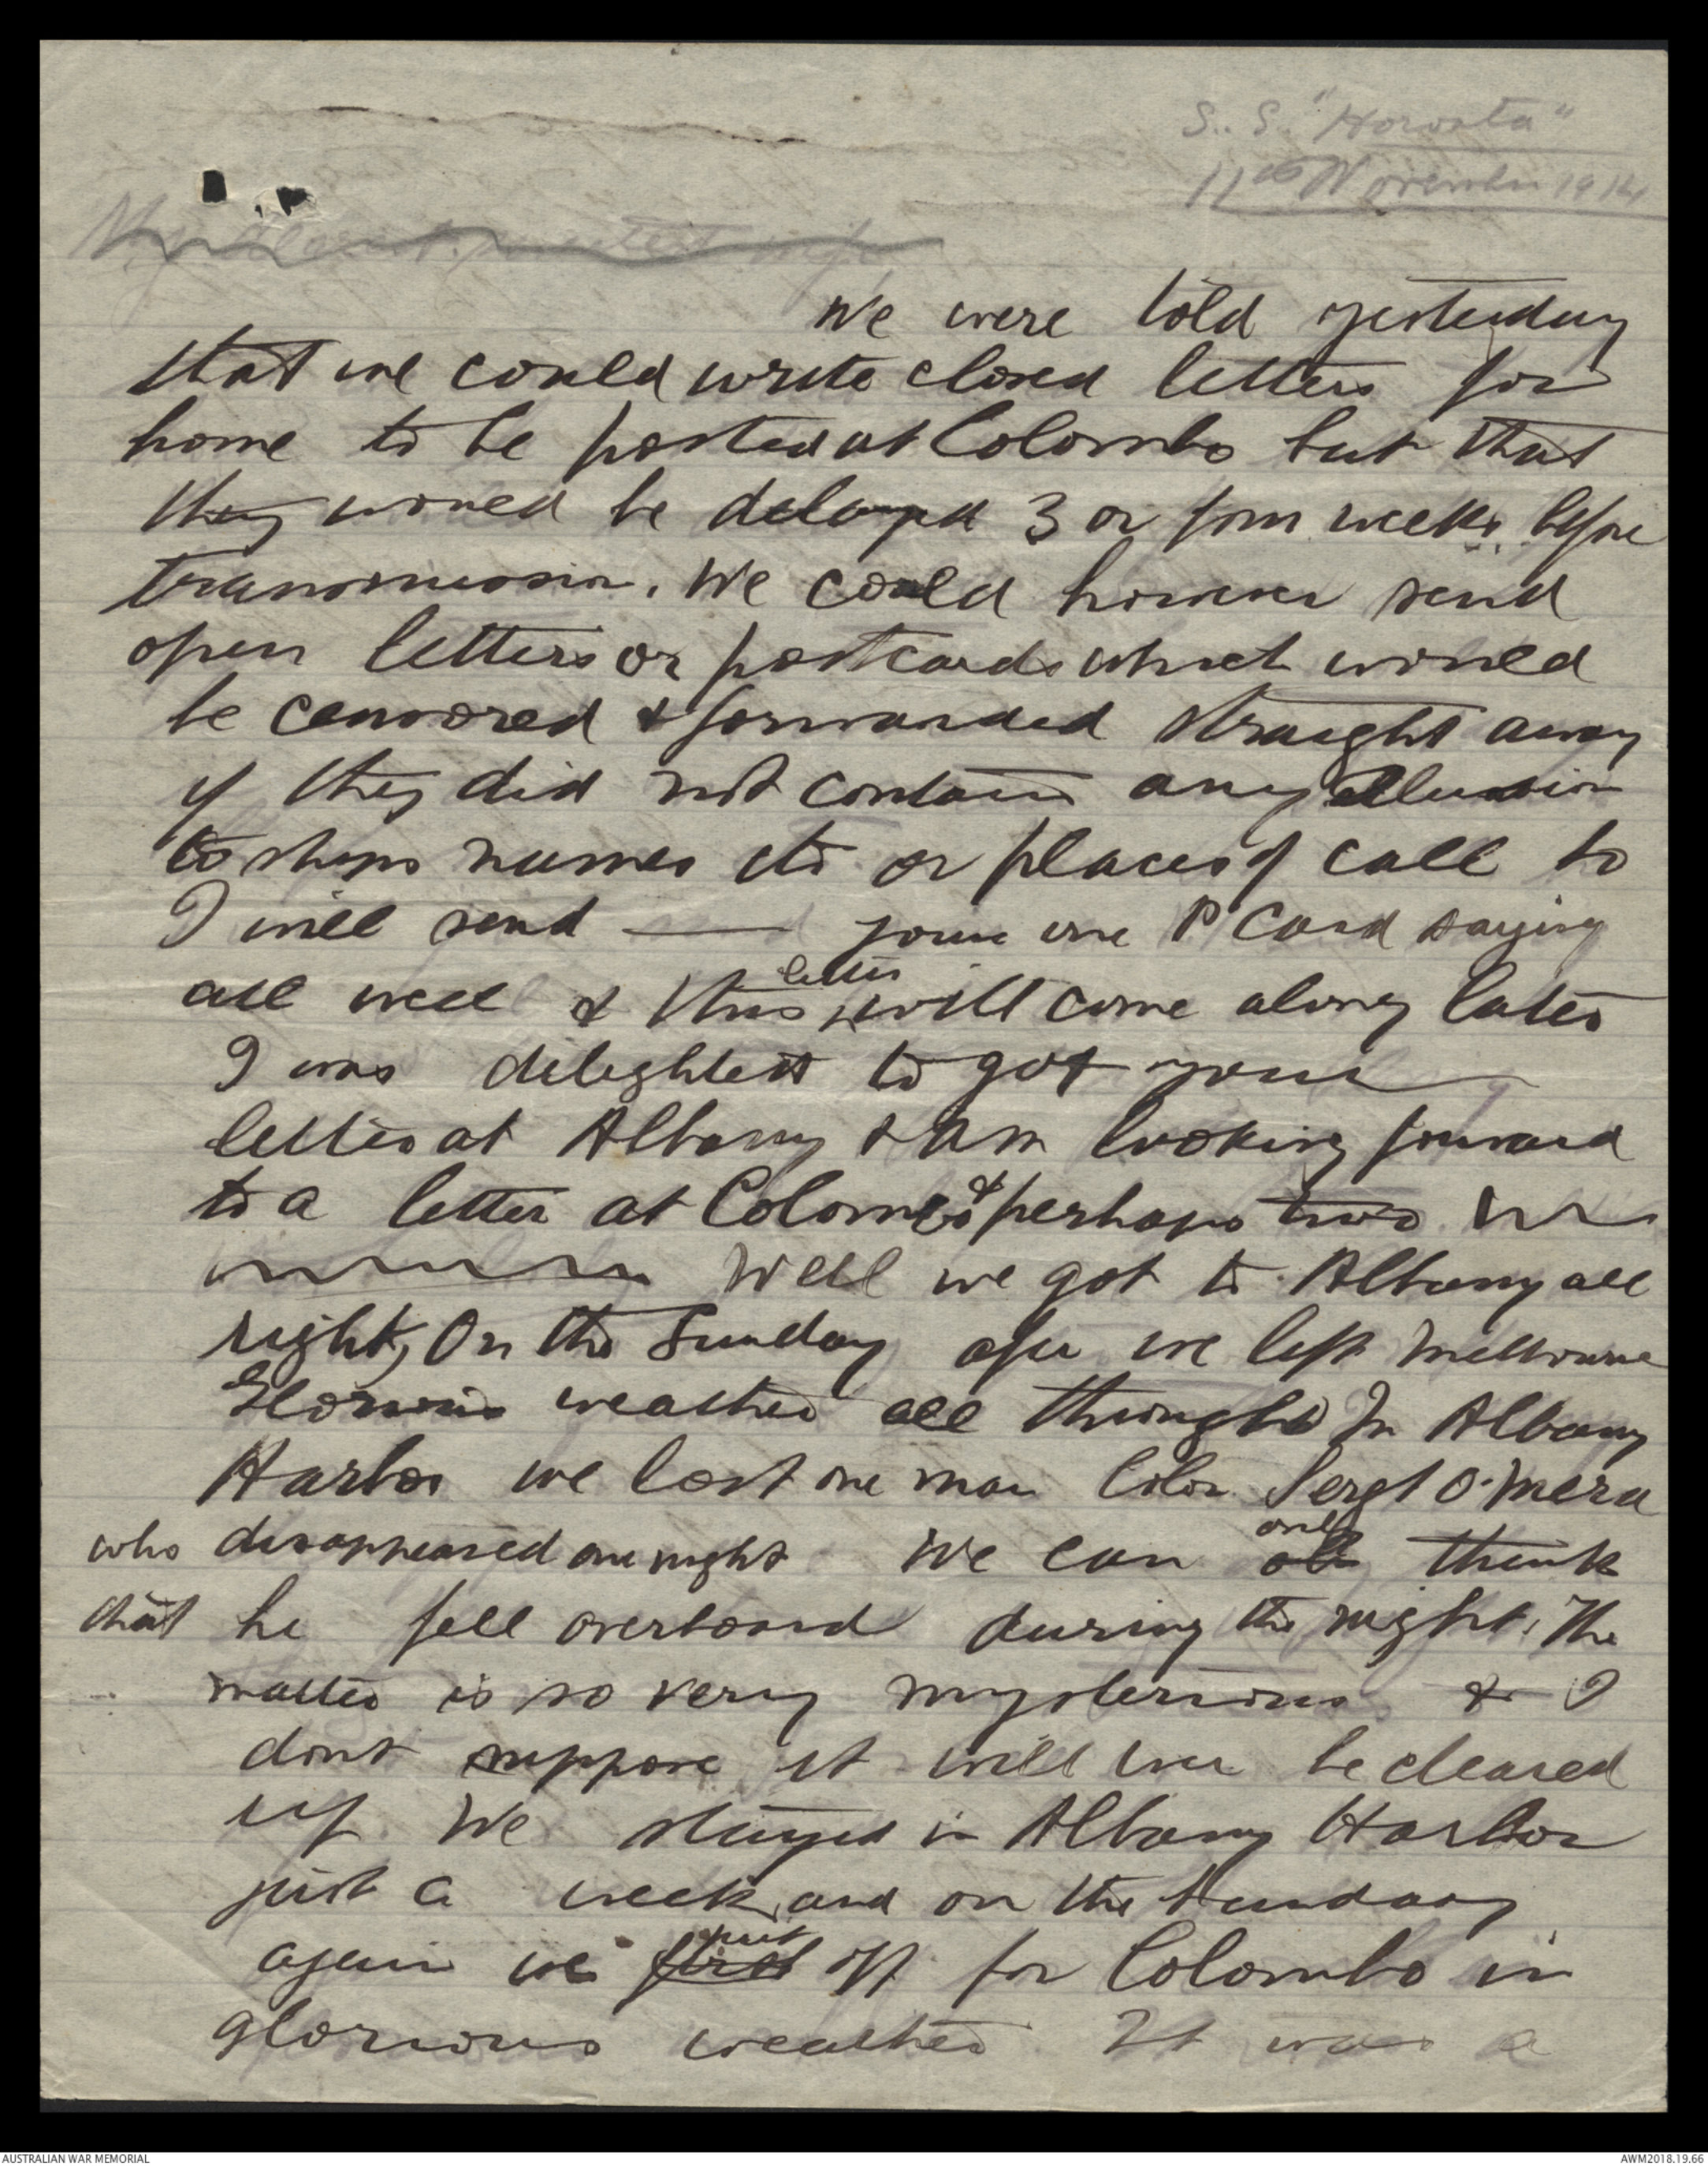 S.. S. "Hororata"
11th November 1914
My dearest sweetest wife
We were told yesterday
that we could write closed letters for
home to be posted at Colombo but that
they would be delayed 3 or four weeks before
transmission. We could however send
open letters or postcards which would
be censored & forwarded straight away
if they did not contain any allusion
to ships names etc or places of call so
I will send ——— your one P Card saying
all well & this letter will come along later
I was delighted to get your
letter at Albany & am looking forward
to a letter at Colombo & perhaps two
Well we got to Albany all
right, On the Sunday after we left Melbourne
Glorious weather all through In Albany
Harbor we lost one man Color Sergt O'Mera
who disappeared one night We can only think
that he fell overboard during the night. The
matter is so very mysterious & I
dont suppose it will ever be cleared
up. We stayed in Albany Harbor
just a week and on the Sunday
again we first put off for Colombo in
glorious weather It was a
AUSTRALIAN WAR MEMORIAL
AWM2018.19.66